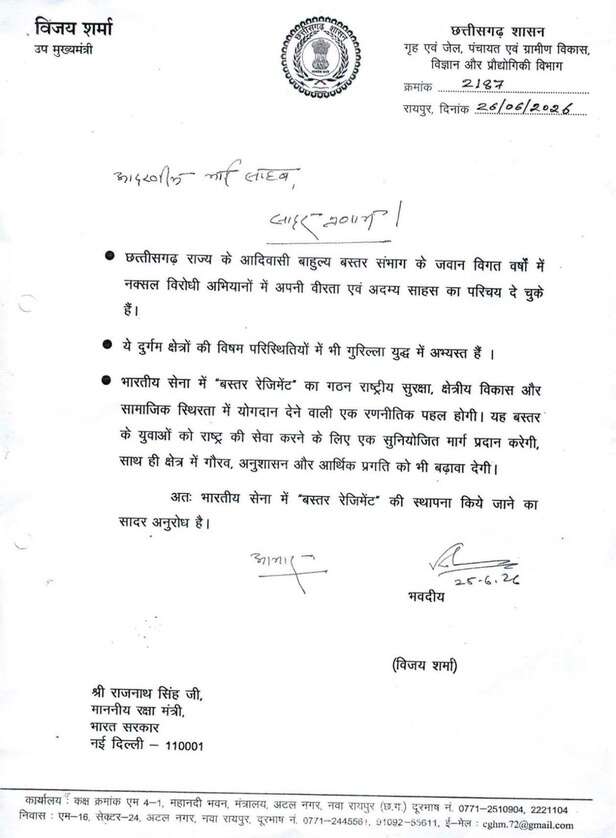 विजय शर्मा
उप मुख्यमंत्री
छत्तीसगढ़ शासन
छत्तीसगढ़ शासन
गृह एवं जेल, पंचायत एवं ग्रामीण विकास,
विज्ञान और प्रौद्योगिकी विभाग
क्रमांक 2187
रायपुर, दिनांक 26/06/2026
आदरणीय भाई साहब,
सादर प्रणाम।
● छत्तीसगढ़ राज्य के आदिवासी बाहुल्य बस्तर संभाग के जवान विगत वर्षों में
नक्सल विरोधी अभियानों में अपनी वीरता एवं अदम्य साहस का परिचय दे चुके
हैं।
● ये दुर्गम क्षेत्रों की विषम परिस्थितियों में भी गुरिल्ला युद्ध में अभ्यस्त हैं ।
● भारतीय सेना में "बस्तर रेजिमेंट" का गठन राष्ट्रीय सुरक्षा, क्षेत्रीय विकास और
सामाजिक स्थिरता में योगदान देने वाली एक रणनीतिक पहल होगी। यह बस्तर
के युवाओं को राष्ट्र की सेवा करने के लिए एक सुनियोजित मार्ग प्रदान करेगी,
साथ ही क्षेत्र में गौरव, अनुशासन और आर्थिक प्रगति को भी बढ़ावा देगी।
अतः भारतीय सेना में "बस्तर रेजिमेंट" की स्थापना किये जाने का
सादर अनुरोध है।
आभार
25-6-26
भवदीय
(विजय शर्मा)
श्री राजनाथ सिंह जी,
माननीय रक्षा मंत्री,
भारत सरकार
नई दिल्ली – 110001
कार्यालय : कक्ष क्रमांक एम 4-1, महानदी भवन, मंत्रालय, अटल नगर, नवा रायपुर (छ.ग.) दूरभाष नं. 0771-2510904, 2221104
निवास : एम-16, सेक्टर-24, अटल नगर, नवा रायपुर, दूरभाष नं. 0771-2445561, 91092-55611, ई-मेल : cghm.72@gmail.com